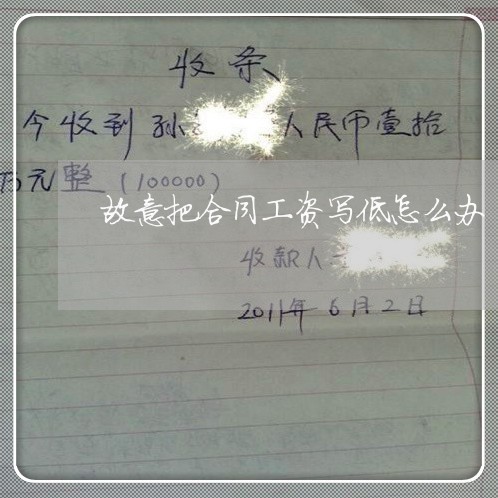 收条
今收到孙 人民币壹拾
万元整（100000）
故意把合同工资写低怎么办
收款人
2011年6月2日